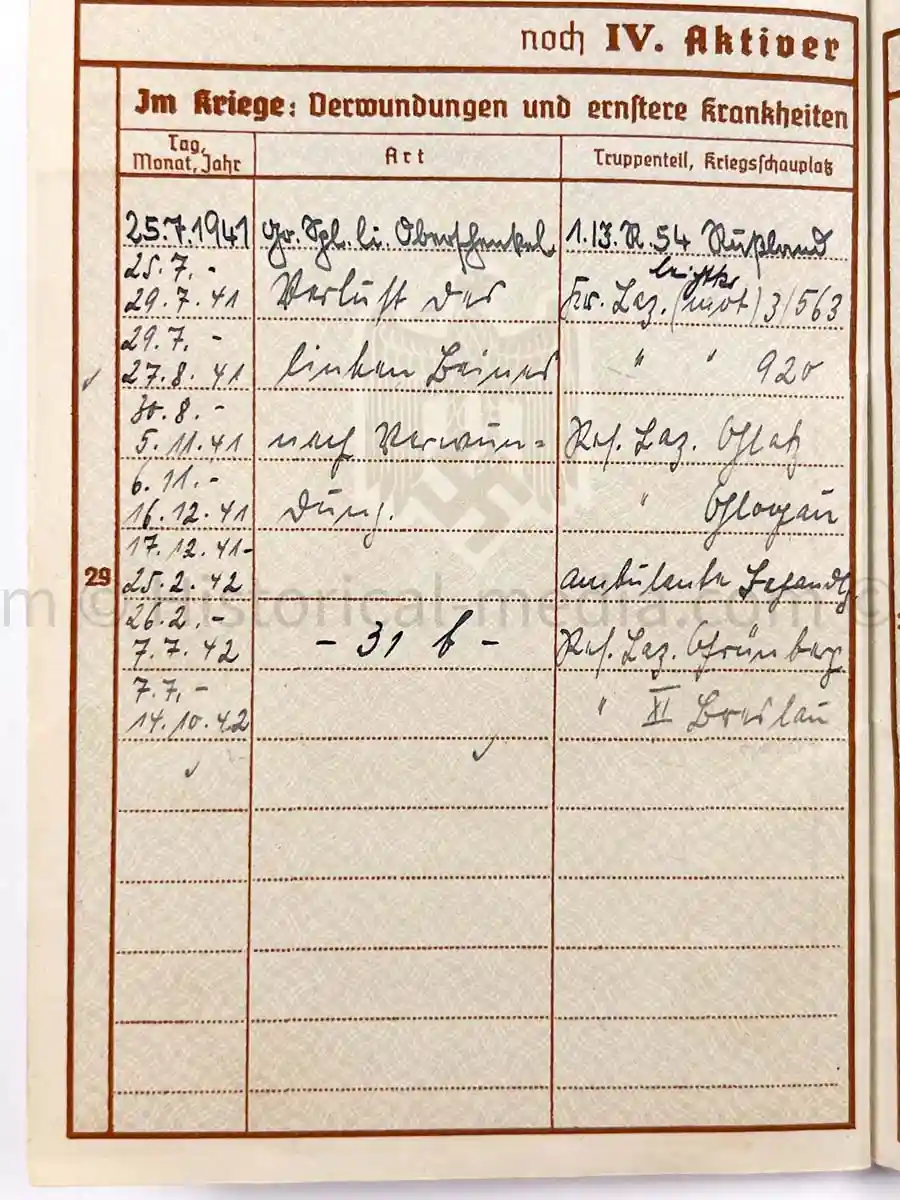 noch IV. Aktiver
Im Kriege: Verwundungen und ernstere Krankheiten
Tag, Monat, Jahr Art Truppenteil, Kriegsschauplatz
25.7.1941 Gr. Spl. li. Oberschenkel. 1.I3.R.54 Rußland
25.7.- leichtes
29.7.41 Verlust des Kr. Laz. (mot) 3/563
29.7. -
27.8.41 linken Beines " " 920
30.8.-
5.11.41 nach Verwun= Res. Laz. Glatz
6.11.-
16.12.41 dung. " Glogau
17.12.41-
29 25.2.42 ambulante Behandlg.
© historical-media.com ©
26.2.-
7.7.42 - 31 b - Res. Laz. Grünberg
7.7.-
14.10.42 " XI Breslau